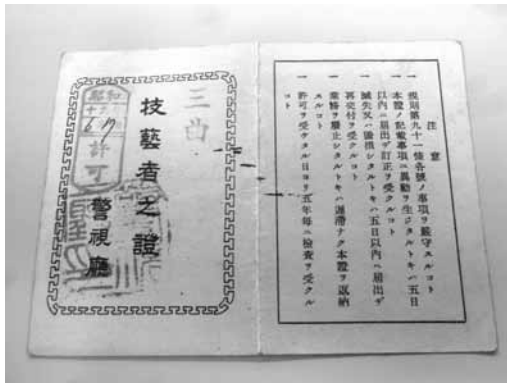 注意
一 規則第九十一條各號ノ事項ヲ嚴守スルコト
一 本證ノ記載事項ニ異動ヲ生ジタルトキハ五日
以内ニ届出デ訂正ヲ受クルコト
一 滅失又ハ毀損シタルトキハ五日以内ニ届出デ
再交付ヲ受クルコト
一 業務ヲ廢止シタルトキハ遲滯ナク本證ヲ返納
スルコト
一 許可ヲ受ケタル日ヨリ五年每ニ檢査ヲ受クル
コト
三曲
技藝者之證
警視廳
昭和
許可